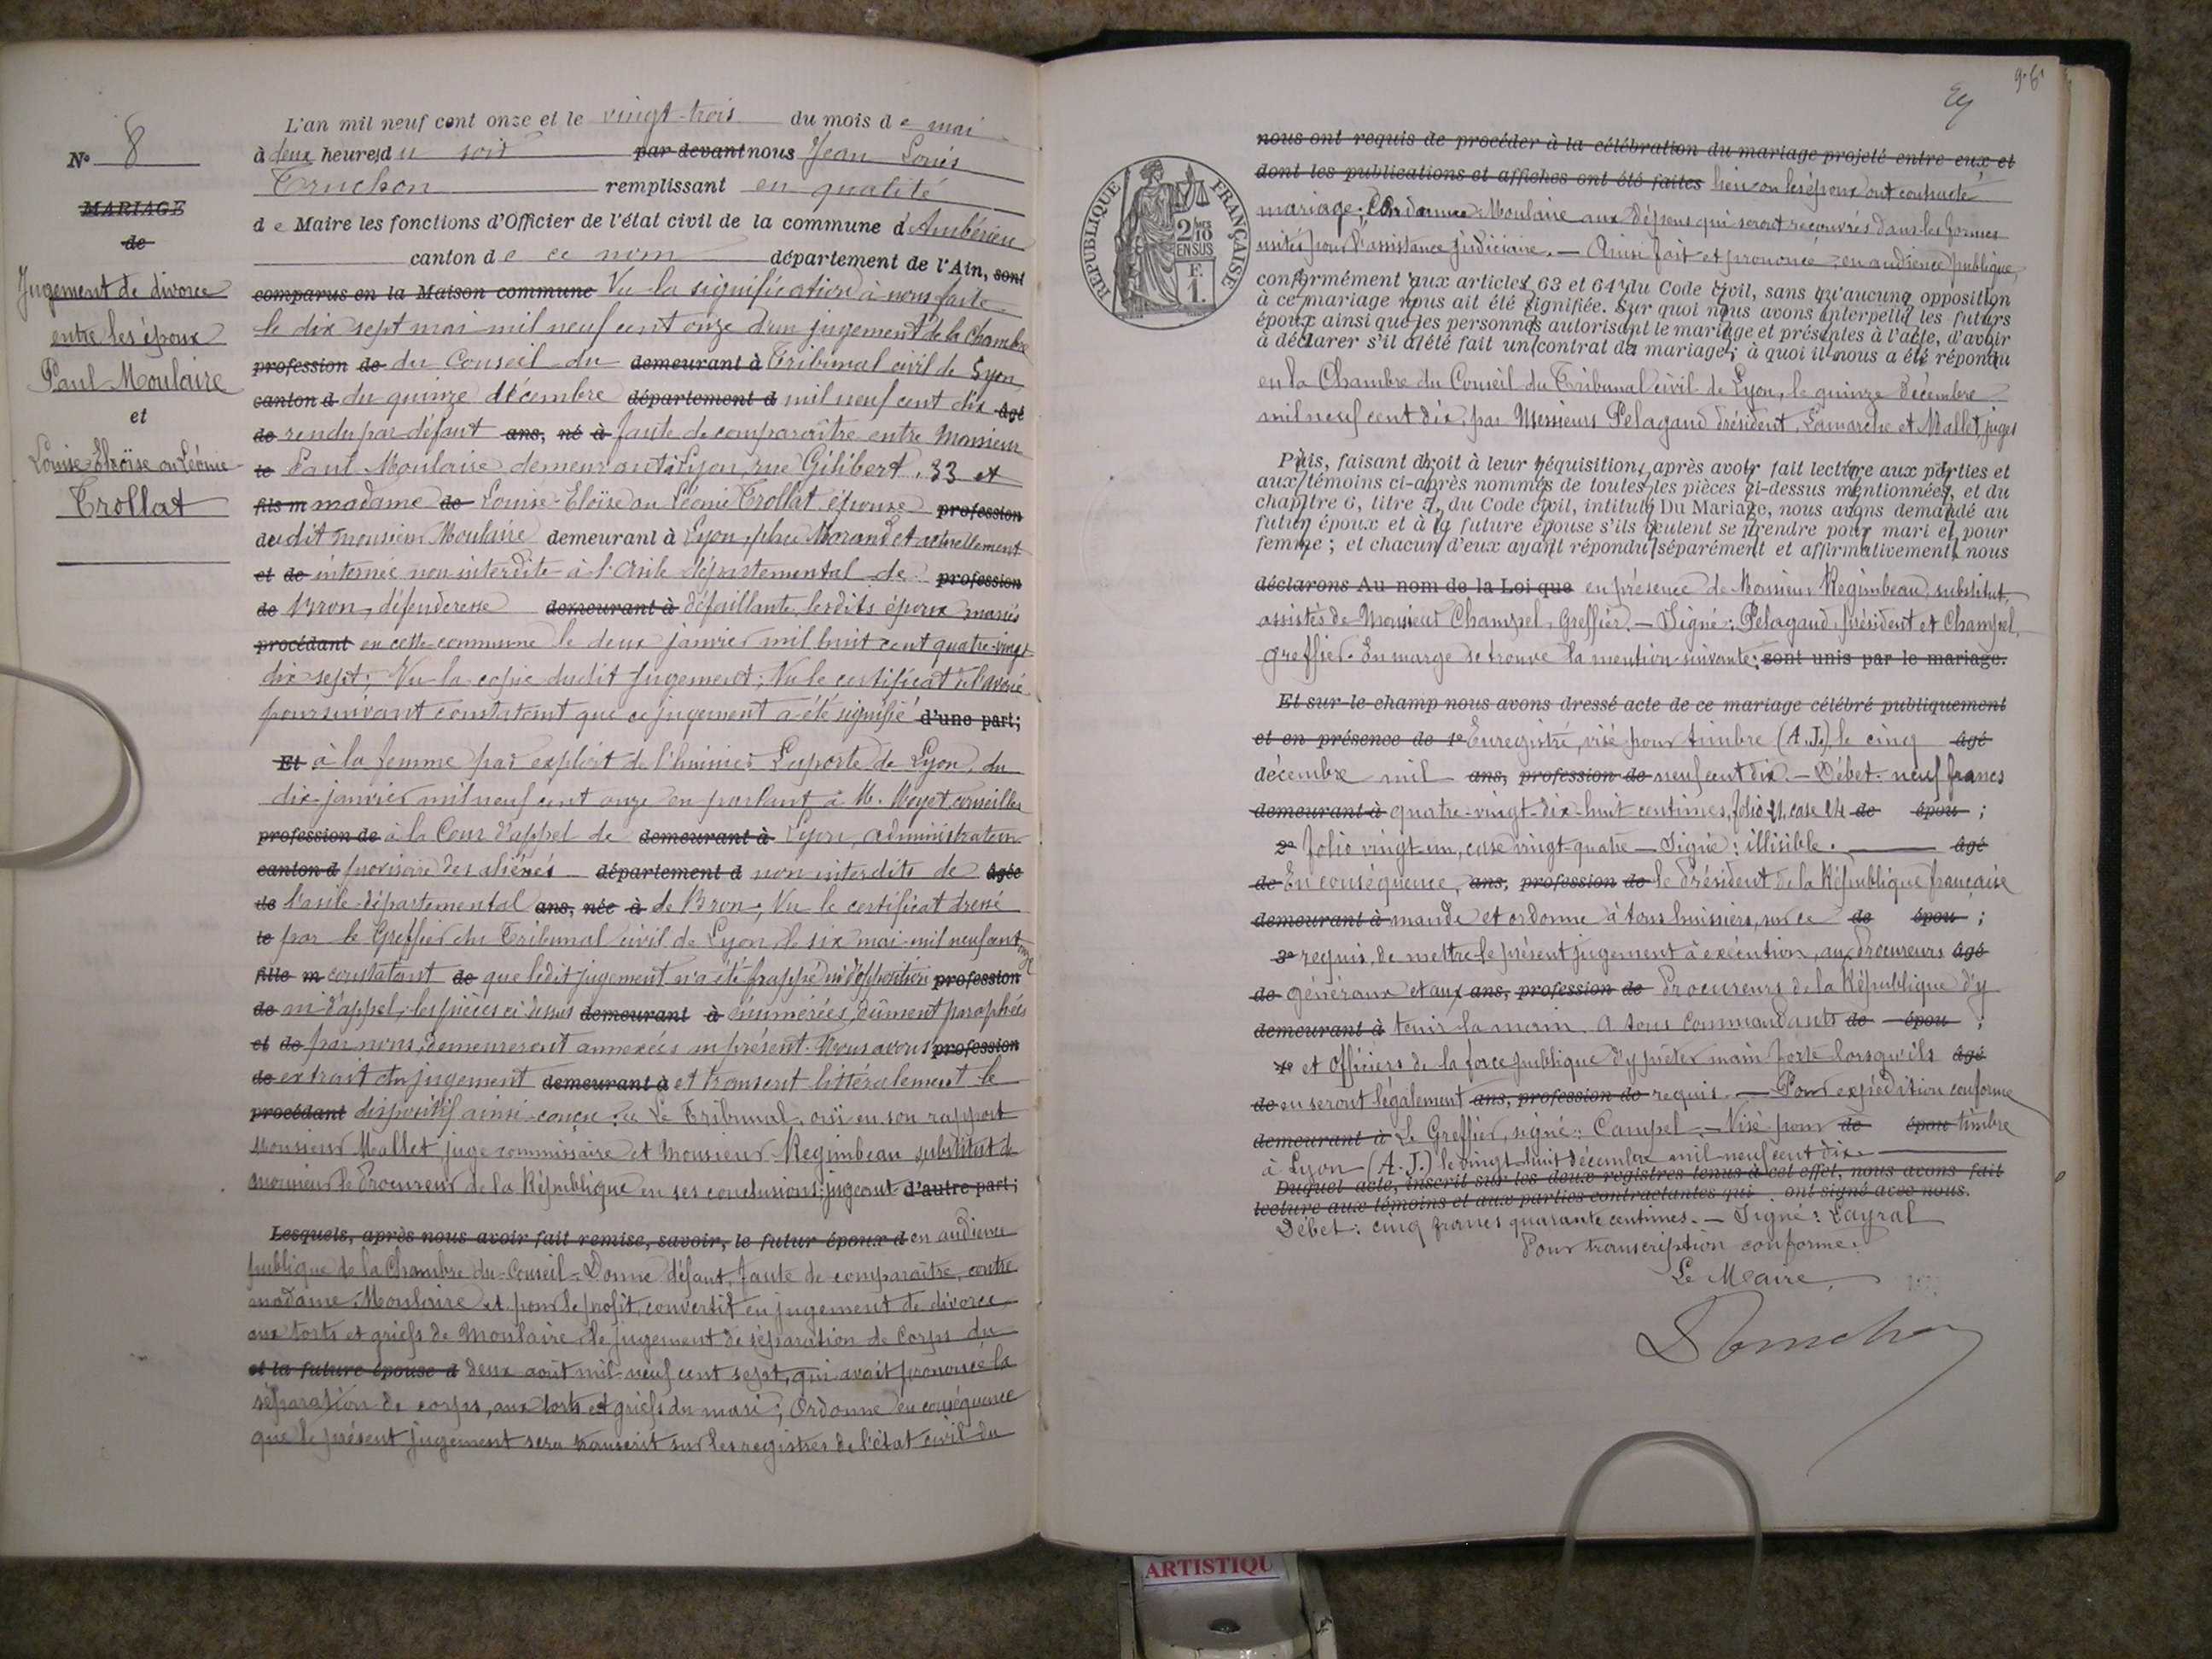 N° 8
MARIAGE
de
Jugement de divorce
entre les époux
Paul Moulaire
et
Louise-Eloïse ou Léonie
Trollat
L'an mil neuf cent onze et le vingt-trois du mois de mai
à deux heures du soir par devant nous Jean Louis
Truchon remplissant en qualité
de Maire les fonctions d'Officier de l'état civil de la commune d'Ambérieu
canton de ce nom département de l'Ain, sont
comparus en la Maison commune Vu la signification à nous faite
le dix sept mai mil neuf cent onze d'un jugement de la Chambre
profession de du Conseil du demeurant à Tribunal civil de Lyon
canton d du quinze décembre département d mil neuf cent dix âgé
de rendu par défaut ans, né à faute de comparaître entre Monsieur
le Paul Moulaire demeurant à Lyon, rue Gilibert, 33 et
fils m madame de Louise-Eloïse ou Léonie Trollat épouse profession
du dit monsieur Moulaire demeurant à Lyon, place Morand et actuellement
et de internée non interdite à l'Asile départemental de profession
de Bron, défenderesse demeurant à défaillante, lesdits époux mariés
procédant en cette commune le deux janvier mil huit cent quatre-vingt
dix sept; Vu la copie dudit jugement; Vu le certificat de l'avoué
poursuivant constatant que ce jugement a été signifié d'une part;
Et à la femme par exploit de l'huissier Laporte de Lyon, du
dix janvier mil neuf cent onze en parlant à M. Meyet conseiller
profession de à la Cour d'appel de demeurant à Lyon, administrateur
canton d provisoire des aliénés département d non interdits de âgée
de l'asile départemental ans, née à de Bron; Vu le certificat dressé
le par le Greffier du Tribunal civil de Lyon le six mai mil neuf cent onze
fille m constatant de que ledit jugement n'a été frappé ni d'opposition profession
de ni d'appel; les pièces ci dessus demeurant à énumérées, dûment paraphées
et de par nous, demeureront annexées au présent. Nous avons profession
de extrait du jugement demeurant à et transcrit littéralement le
procédant dispositif ainsi conçu: « Le Tribunal, ouï en son rapport
Monsieur Mallet juge commissaire et Monsieur Regimbeau substitut de
monsieur le Procureur de la République en ses conclusions; jugeant d'autre part;
Lesquels, après nous avoir fait remise, savoir, le futur époux d en audience
publique de la Chambre du Conseil - Donne défaut, faute de comparaître, contre
madame Moulaire et pour le profit, convertit en jugement de divorce
aux torts et griefs de Moulaire, le jugement de séparation de corps du
et la future épouse d deux août mil neuf cent sept, qui avait prononcé la
séparation de corps, aux torts et griefs du mari; Ordonne en conséquence
que le présent jugement sera transcrit sur les registres de l'état civil du
96
RÉPUBLIQUE FRANÇAISE
2/10 EN SUS
F.
1.
nous ont requis de procéder à la célébration du mariage projeté entre eux et
dont les publications et affiches ont été faites lieu où les époux ont contracté
mariage; Condamne Moulaire aux dépens qui seront recouvrés dans les formes
usités pour l'assistance judiciaire. — Ainsi fait et prononcé en audience publique
conformément aux articles 63 et 64 du Code civil, sans qu'aucune opposition
à ce mariage nous ait été signifiée. Sur quoi nous avons interpellé les futurs
époux ainsi que les personnes autorisant le mariage et présentes à l'acte, d'avoir
à déclarer s'il a été fait un contrat de mariage; à quoi il nous a été répondu
en la Chambre du Conseil du Tribunal civil de Lyon, le quinze décembre
mil neuf cent dix, par Messieurs Pelagaud Président, Lamarche et Mallet, juges
Puis, faisant droit à leur réquisition, après avoir fait lecture aux parties et
aux témoins ci-après nommés de toutes les pièces ci-dessus mentionnées, et du
chapitre 6, titre 5, du Code civil, intitulé Du Mariage, nous avons demandé au
futur époux et à la future épouse s'ils veulent se prendre pour mari et pour
femme; et chacun d'eux ayant répondu séparément et affirmativement, nous
déclarons Au nom de la Loi que en présence de Monsieur Regimbeau, substitut,
assistés de Monsieur Champel, Greffier. — Signé: Pelagaud, président et Champel,
greffier. En marge se trouve la mention suivante: sont unis par le mariage.
Et sur-le-champ nous avons dressé acte de ce mariage célébré publiquement
et en présence de 1° Enregistré, visé pour timbre (A.J.) le cinq âgé
décembre mil ans, profession de neuf cent dix. — Débet. neuf francs
demeurant à quatre-vingt-dix-huit centimes, folio 21, case 24 de épou ;
2° folio vingt-un, case vingt-quatre — Signé: illisible. âgé
de En conséquence, ans, profession de le Président de la République française
demeurant à mande et ordonne à tous huissiers, sur ce de épou ;
3° requis, de mettre le présent jugement à exécution, aux Procureurs âgé
de généraux et aux ans, profession de Procureurs de la République d'y
demeurant à tenir la main. A tous commandants de épou ;
4° et officiers de la force publique d'y prêter main forte lorsqu'ils âgé
de en seront légalement ans, profession de requis. — Pour expédition conforme
demeurant à Le Greffier, signé: Campel. — Visé pour de épou timbre
à Lyon (A.J.) le vingt huit décembre mil neuf cent dix.
Duquel acte, inscrit sur les deux registres tenus à cet effet, nous avons fait
lecture aux témoins et aux parties contractantes qui ont signé avec nous.
Débet: cinq francs quarante centimes. — Signé: Layral
Pour transcription conforme.
Le Maire,
ARTISTIQU